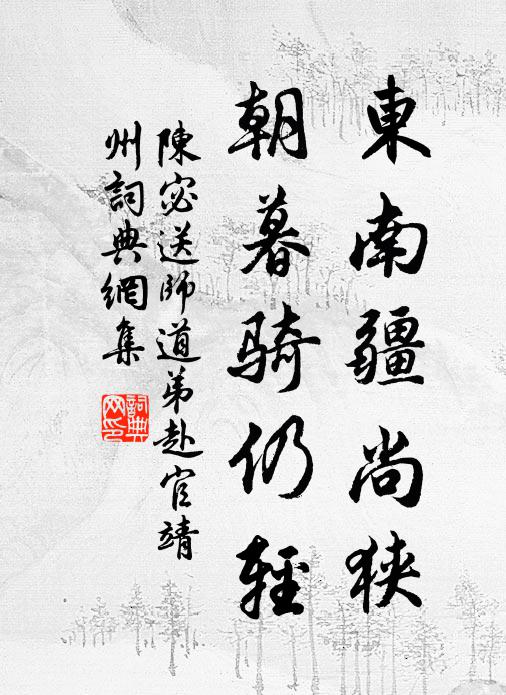 東南疆尚狹
朝暮騎仍輕
陳宓送師道弟赴官靖
州詞典網集
詞典
网印